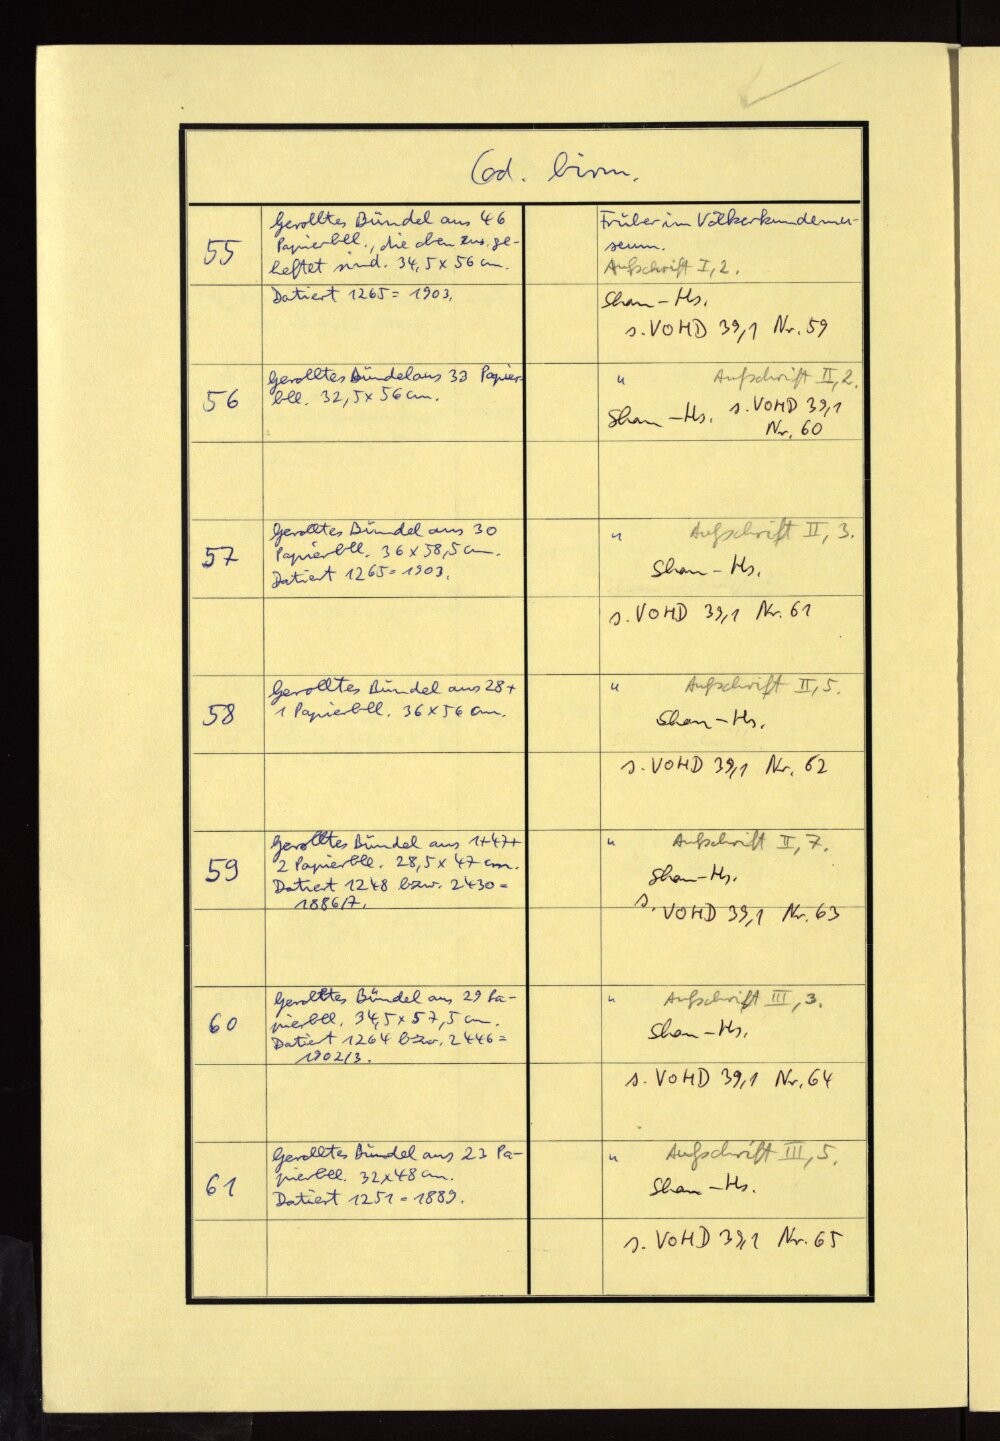 Cod. birm.
55
Gerolltes Bündel aus 46
Papierbll., die oben zus. ge-
heftet sind. 34,5 x 56 cm.
Datiert 1265 = 1903.
Früher im Völkerkundemu-
seum.
Aufschrift I, 2.
Shan-Hs.
s. VOHD 39,1 Nr. 59
56
Gerolltes Bündel aus 33 Papier-
bll. 32,5 x 56 cm.
" Aufschrift II, 2.
Shan-Hs. s. VOHD 39,1
Nr. 60
57
Gerolltes Bündel aus 30
Papierbll. 36 x 58,5 cm.
Datiert 1265 = 1903.
" Aufschrift II, 3.
Shan-Hs.
s. VOHD 39,1 Nr. 61
58
Gerolltes Bündel aus 28+
1 Papierbll. 36 x 56 cm.
" Aufschrift II, 5.
Shan-Hs.
s. VOHD 39,1 Nr. 62
59
Gerolltes Bündel aus 1+47+
2 Papierbll. 28,5 x 47 cm.
Datiert 1248 bzw. 2430 =
1886/7.
" Aufschrift II, 7.
Shan-Hs.
s. VOHD 39,1 Nr. 63
60
Gerolltes Bündel aus 29 Pa-
pierbll. 34,5 x 57,5 cm.
Datiert 1264 bzw. 2446 =
1902/3.
" Aufschrift III, 3.
Shan-Hs.
s. VOHD 39,1 Nr. 64
61
Gerolltes Bündel aus 23 Pa-
pierbll. 32 x 48 cm.
Datiert 1251 = 1889.
" Aufschrift III, 5.
Shan-Hs.
s. VOHD 39,1 Nr. 65